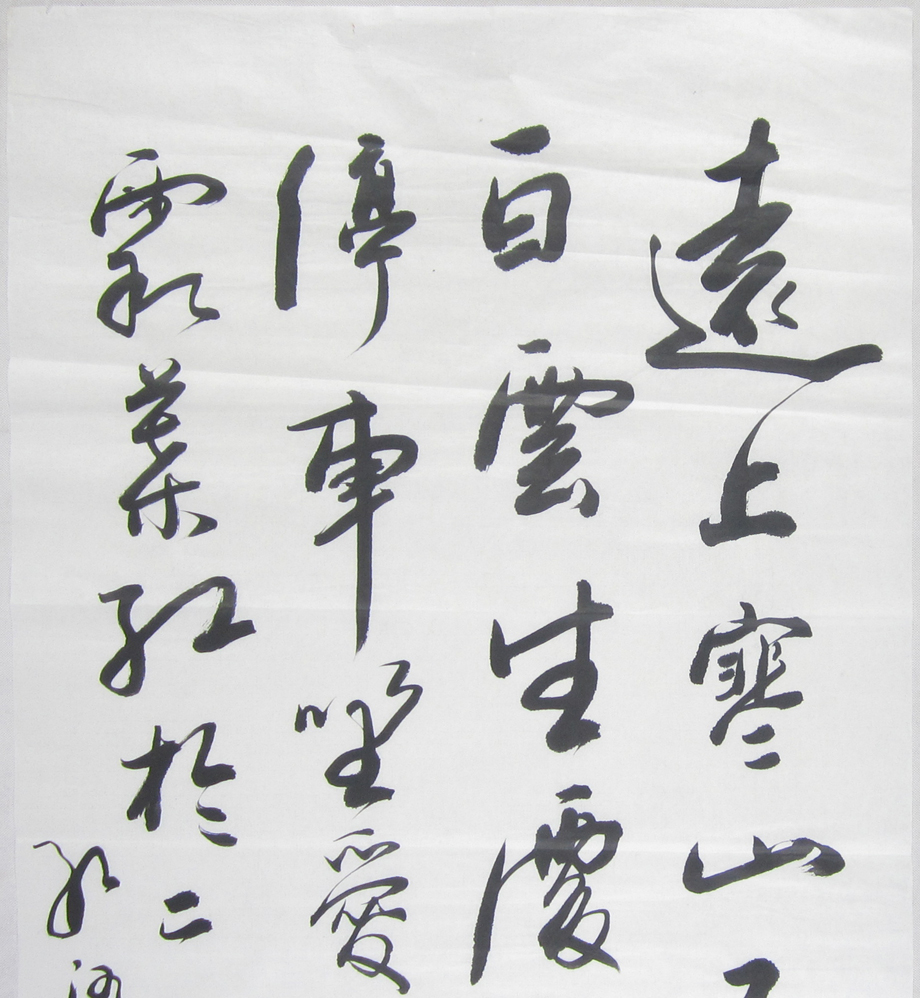 遠上寒山
白雲生處
停車坐愛
霜葉紅於二